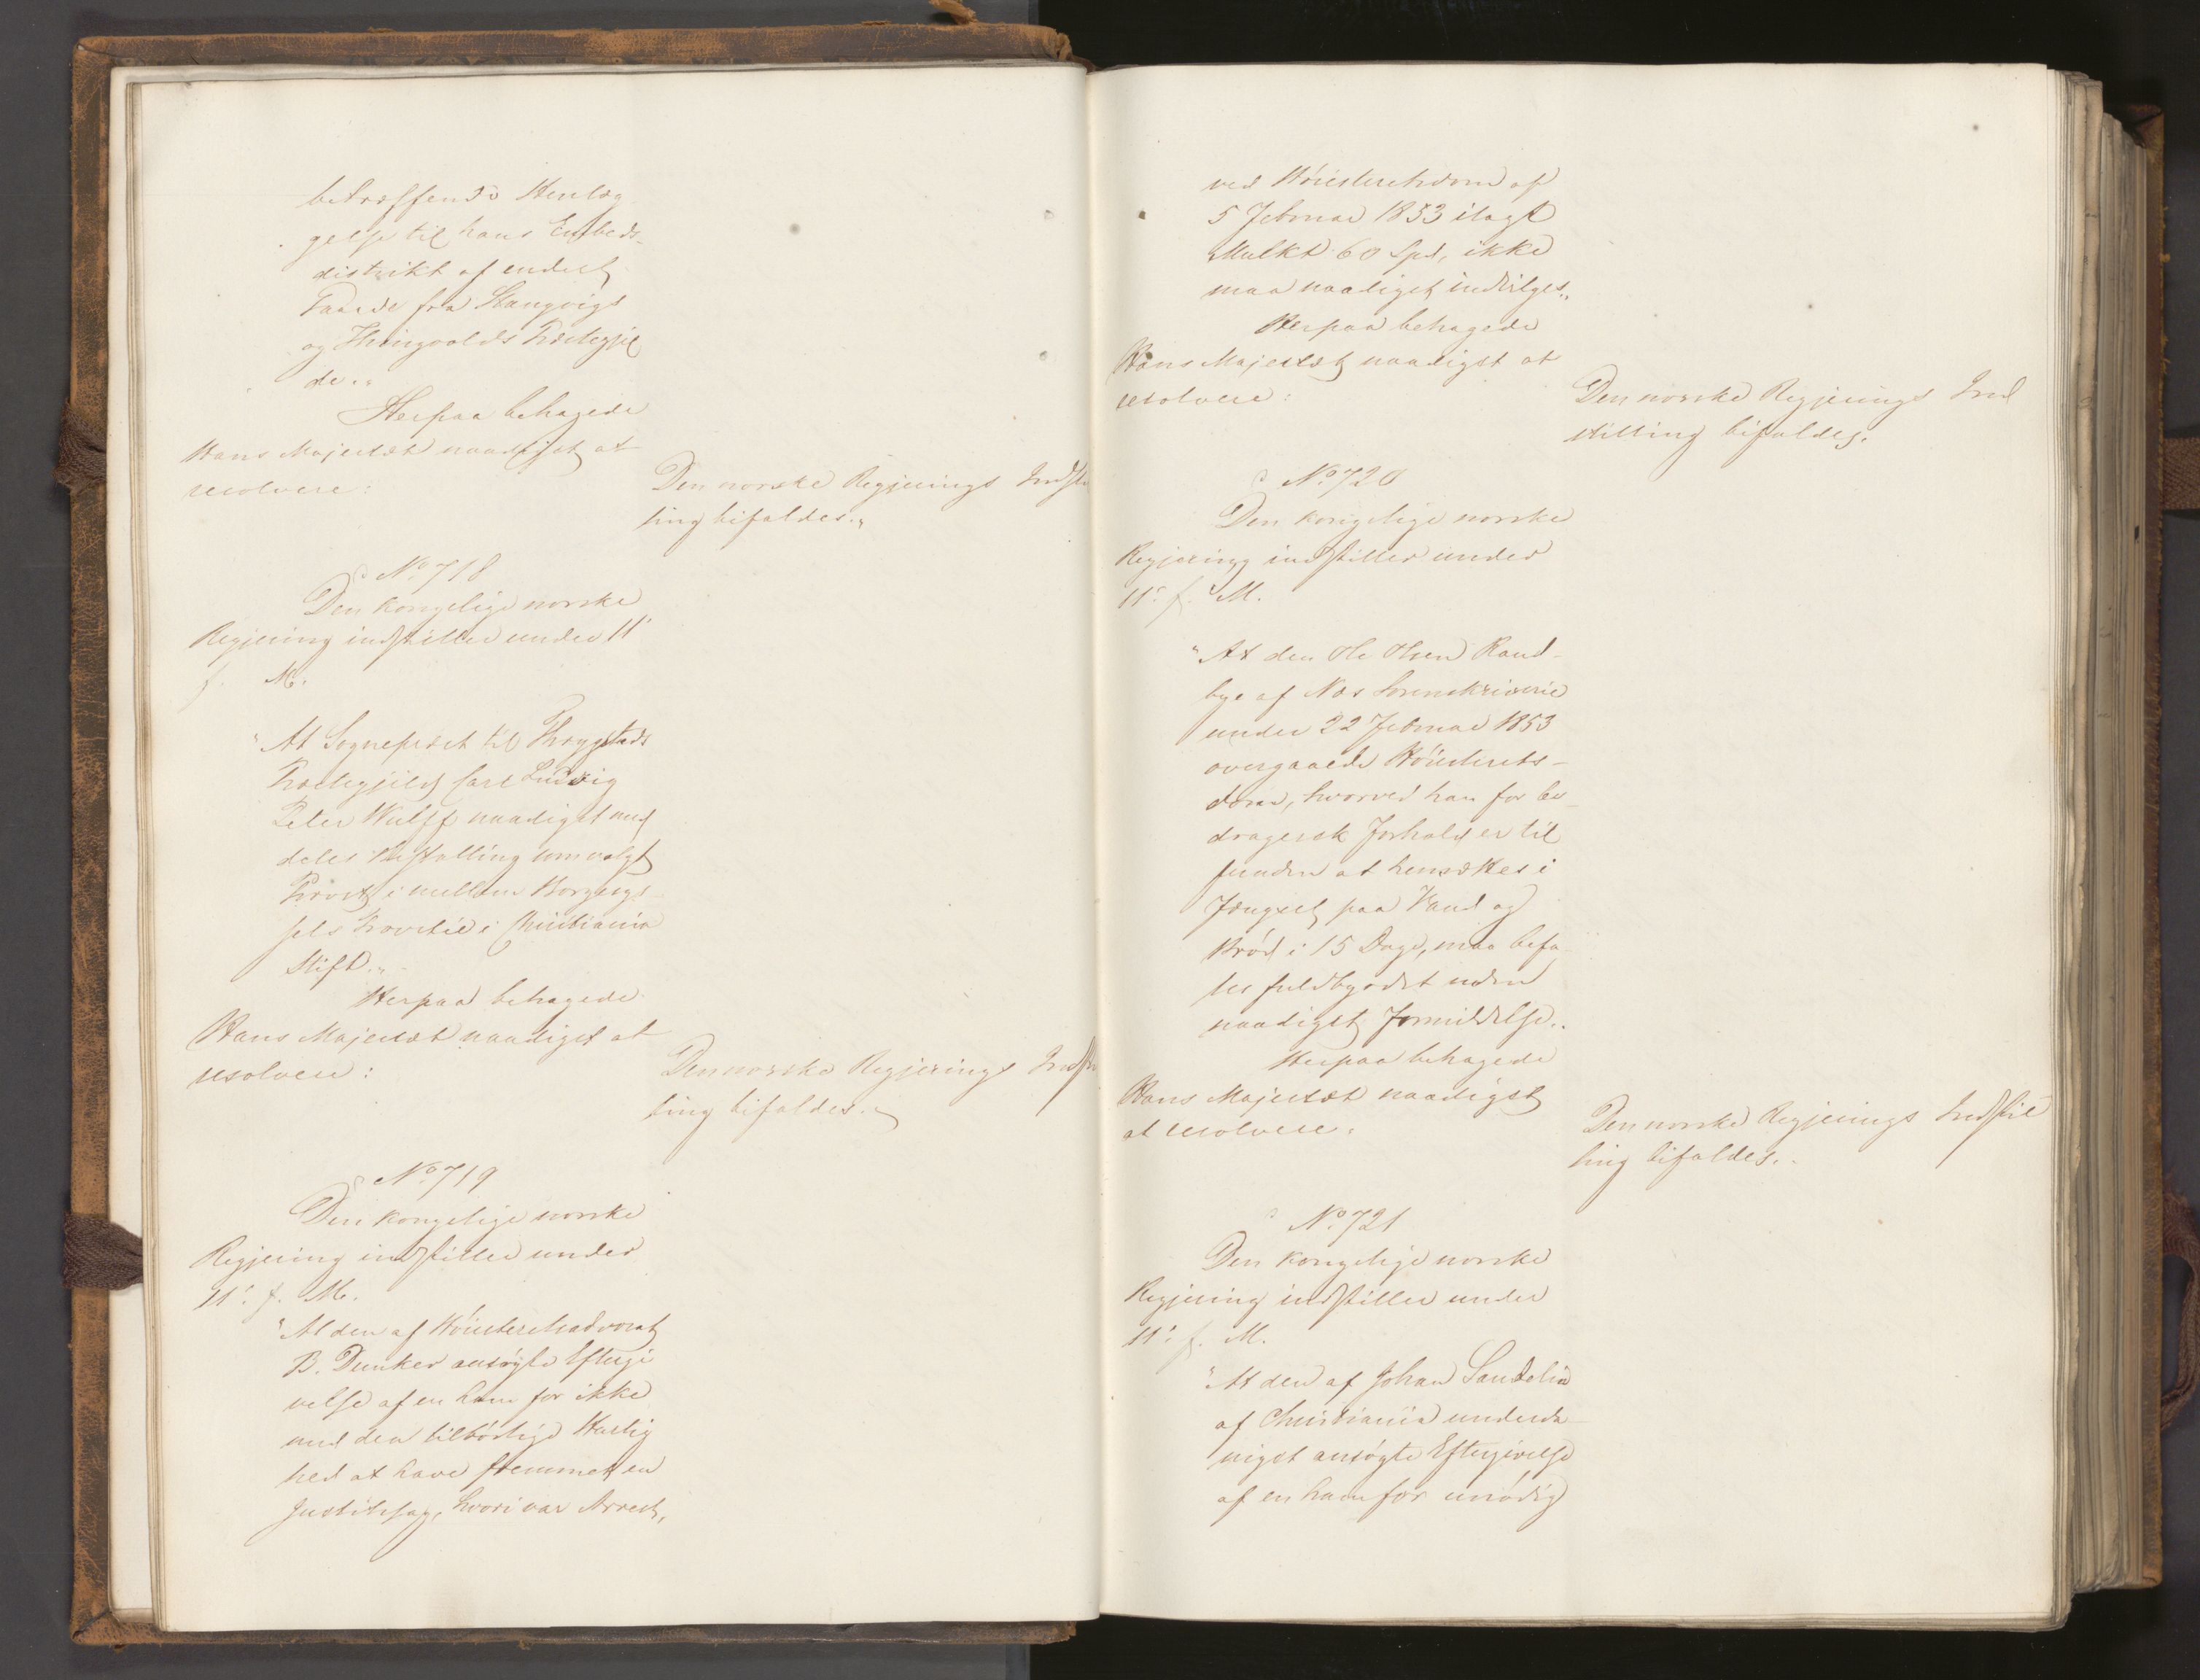 betræffende Henlæg
gelse til hans Embeds-
distrikt af endeel
Gaarde fra Stangvigs
og Thingvolds Præstegjel
de.„
Herpaa behagede
Hans Majestæt naadigst at
resolvere:
Den norske Regjerings Indstil
ling bifaldes.„
No 718
Den kongelige norske
Regjering indstiller under 11'
f. M.
"At Sognepræst til Thrygstads
Præstegjeld Carl Ludvig
Peter Wulff naadigst med
deles Bestalling som valgt
Provst i mellem Borgesys-
sels Provstie i Christiania
Stift.„
Herpaa behagede
Hans Majestæt naadigst at
resolvere:
Den norske Regjerings Indstil
ling bifaldes.„
No 719
Den kongelige norske
Regjering indstiller under
11' f. M.
"At den af Höiesteretsadvocat
B. Dunker ansögte Eftergi
velse af en ham for ikke
med den tilbörlige Hurtig
hed at have fremmet en
Justitssag, hvori var Arrest,
ved Höiesteretsdom af
5 Februar 1853 ilagt
Mulkt 60 Spd, ikke
maa naadigst indvilges.„
Herpaa behagede
Hans Majestæt naadigst at
resolvere:
Den norske Regjerings Ind
stilling bifaldes.
No 720
Den kongelige norske
Regjering indstiller under
11' f. M.
"At den Ole Olsen Rand-
bye af Næs Sorenskriverie
under 22 Februar 1853
overgaaede Höiesterets-
dom, hvorved han for be-
dragersk Forhold er til
funden at hensættes i
Fængsel paa Vand og
Bröd i 15 Dage, maa befa-
les fuldbyrdet uden
naadigst Formildelse.„
Herpaa behagede
Hans Majestæt naadigst
at resolvere:
Den norske Regjerings Indstil
ling bifaldes.„
No 721
Den kongelige norske
Regjering indstiller under
11' f. M.
"At den af Johan Sandelin
af Christiania underda-
nigst ansögte Eftergivelse
af en ham for unödig